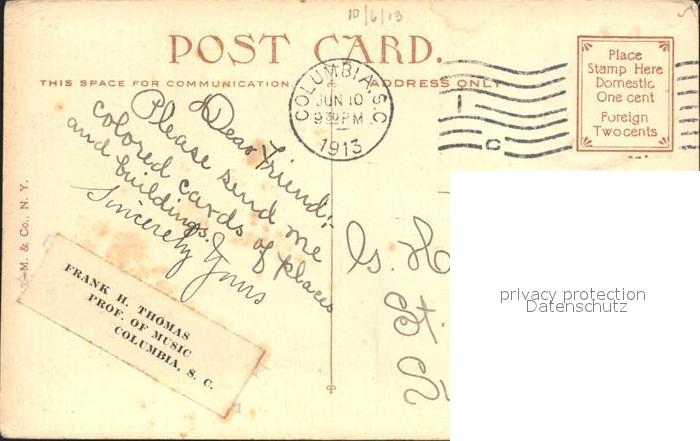 10/6/13
POST CARD.
THIS SPACE FOR COMMUNICATION. ADDRESS ONLY
COLUMBIA, S.C.
JUN 10
930 PM
1913
Place
Stamp Here
Domestic
One cent
Foreign
Two cents
Dear Friend:-
Please send me
colored cards of places
and buildings.
Sincerely Yours
M. & Co., N. Y.
FRANK H. THOMAS
PROF. OF MUSIC
COLUMBIA, S. C.
H
St.
privacy protection
Datenschutz